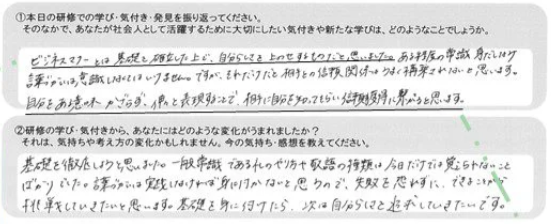 ①本日の研修での学び・気付き・発見を振り返ってください。
そのなかで、あなたが社会人として活躍するために大切にしたい気付きや新たな学びは、どのようなことでしょうか。
ビジネスマナーとは基礎を確立した上で、自分らしさを上のせするものだと思いました。ある程度の常識、身だしなみ
言葉づかいは意識しなくてはいけません。ですが、それだけだと相手との信頼関係はうまく構築されないと思います。
自分をある意味かざらず、使って表現することで、相手に自分を知ってもらい信頼獲得に繋がると思います。
②研修の学び・気付きから、あなたにはどのような変化がうまれましたか？
それは、気持ちや考え方の変化かもしれません。今の気持ち・感想を教えてください。
基礎を徹底しようと思いました。一般常識であるれいのやり方や敬語の種類は今日だけでは覚えられないこと
ばかりでした。言葉づかいは実践しなければ身に付かないと思うので、失敗を恐れずに、できることから
挑戦していきたいと思います。基礎を身に付けたら、次は自分らしさを追求していきたいです。